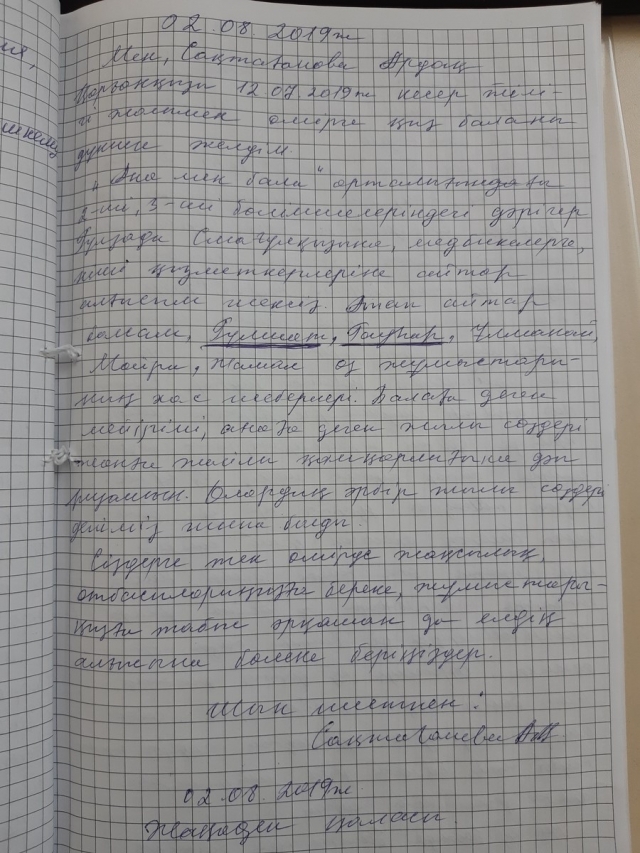 02.08.2019ж
Мен, Сақтағанова Ардақ
12.07.2019ж кесер тілі-
гі жолымен өмірге қыз баланы
дүниеге келдім.
"Ана мен бала" орталығындағы
2-ші, 3-ші бөлімшелеріндегі дәрігер
Гулзада Смағулқызына, медбикелерге,
кіші қызметкерлеріне айтар
алғысым шексіз. Атап айтар
болсам, Гулшат, Гаухар, Улманай,
Мойра, Жамал өз жұмыстары-
ның хас шеберлері. Балаға деген
мейірімі, анаға деген жылы сөздері
жанға жайлы қамқорлығына дән
ризамын. Олардың әрбір жылы сөздері
бізге шипа болды.
Сіздерге тек өмірде жақсылық,
отбасыларыңызға береке, жұмыстары-
ңызға табыс әрқашан да елдің
алғысына бөлене беріңіздер.
Шын ниетпен:
Сақтағанова А.П.
02.08.2019ж.
қаласы.